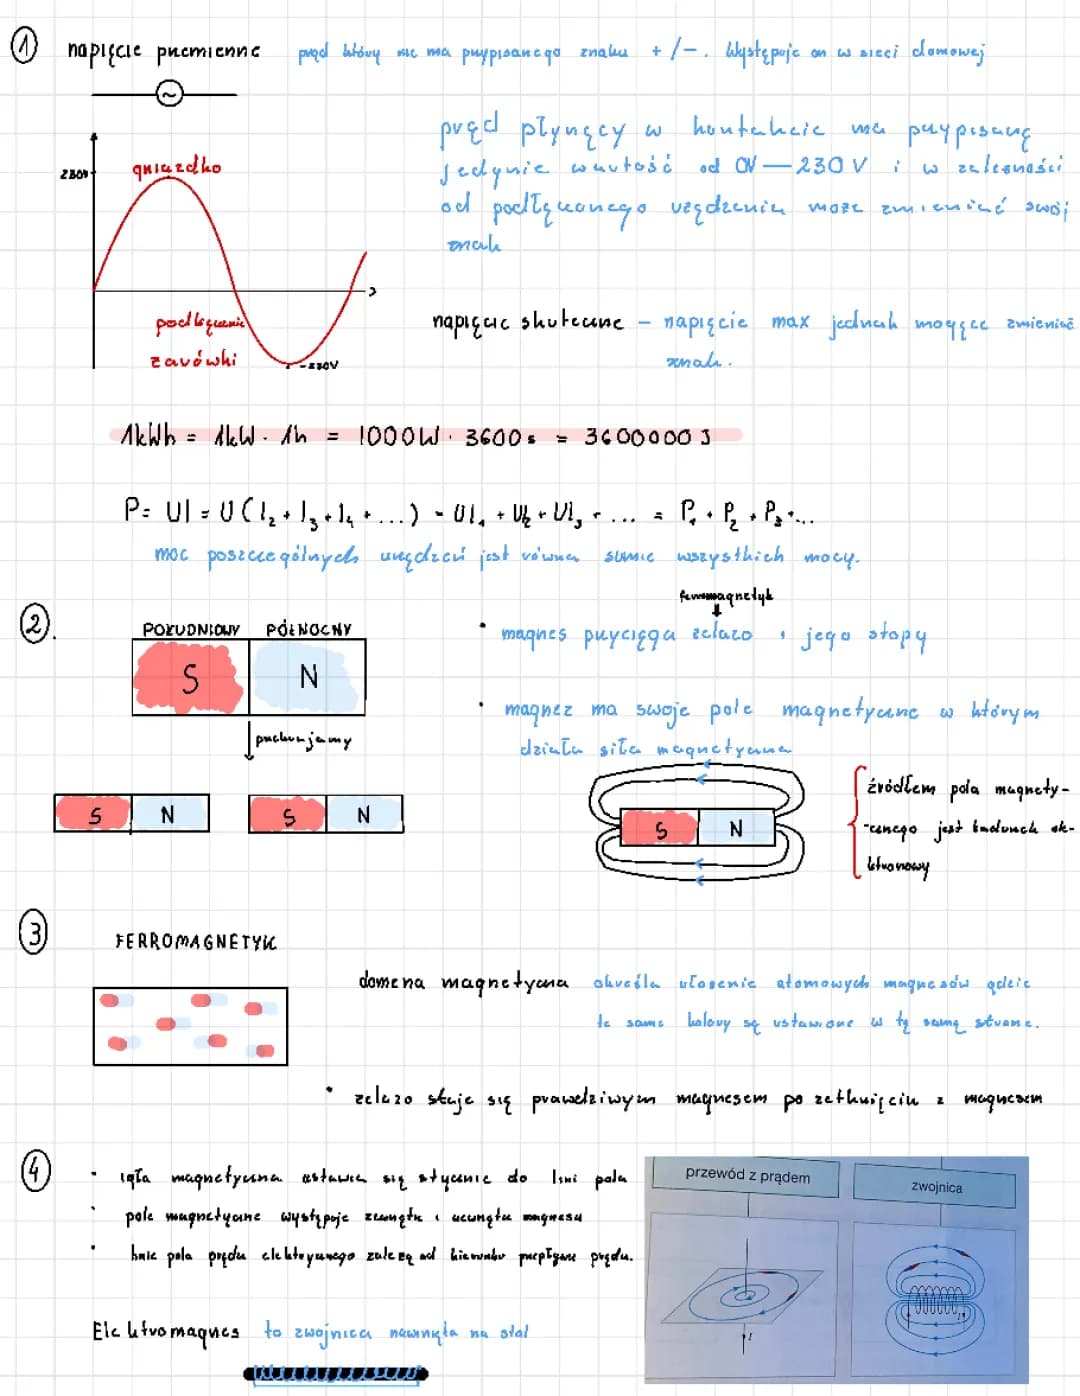 1 napięcie przemienne prąd który nie ma przypisanego znaku +/-. Występuje on w sieci domowej
~
prąd płynący w kontakcie ma przypisaną
230V gniazdko
jedynie wartość od 0V — 230 V i w zależności
od podłączanego urządzenia może zmieniać swój
znak
podłączenie
żarówki
-230V
napięcie skuteczne - napięcie max jednak mogące zmieniać
znak.
1kWh = 1kW · 1h = 1000W · 3600s = 3600000 J
P= UI = U(I₂ + I₃ + I₄ + ...) = UI₁ + UI₂ + UI₃ + ... = P₁ + P₂ + P₃ + ...
moc poszczególnych urządzeń jest równa sumie wszystkich mocy.
2. POŁUDNIOWY PÓŁNOCNY
S N
przekrajamy
S N S N
ferromagnetyk
• magnes przyciąga żelazo i jego stopy
• magnez ma swoje pole magnetyczne w którym
działa siła magnetyczna
S N
źródłem pola magnety-
-cznego jest ładunek ele-
ktronowy
3 FERROMAGNETYK
domena magnetyczna określa ułożenie atomowych magnesów gdzie
te same kolory są ustawione w tą samą stronę.
• żelazo staje się prawdziwym magnesem po zetknięciu z magnesem
4 • igła magnetyczna ustawia się stycznie do lini pola
• pole magnetyczne występuje zewnątrz i wewnątrz magnesu
• linie pola prądu elektrycznego zależą od kierunku przepływu prądu.
przewód z prądem
I
zwojnica
I
Elektromagnes to zwojnica nawinięta na stal